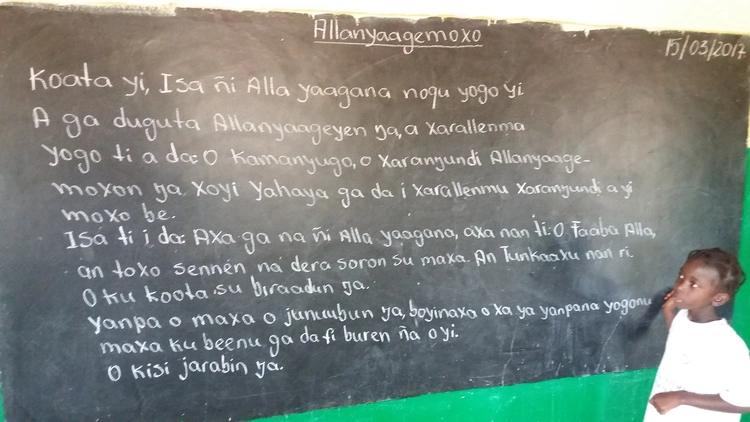 Allanyaagemoxo
15/03/2017
Koota yi, Isa ñi Alla yaagana noqu yogo yi
A ga duguta Allanyaageyen ŋa, a xarallenma
yogo ti a da: O Kamanyugo, o xaranŋundi Allanyaage-
moxon ŋa xoyi Yahaya ga da i xarallenmu xaranŋundi a yi
moxo be.
Isá ti i da: Axa ga na ñi Alla yaagana, axa nan ti: O Faaba Alla,
an toxo sennen na dera soron su maxa. An Tunkaaxu nan ri.
O ku koota su biraadun ŋa.
Yanpa o maxa o junuubun ŋa, boyinaxa o xa ya yanpana yogonu
maxa ku beenu ga dafi buren ña o yi.
O kisi jarabin ŋa.